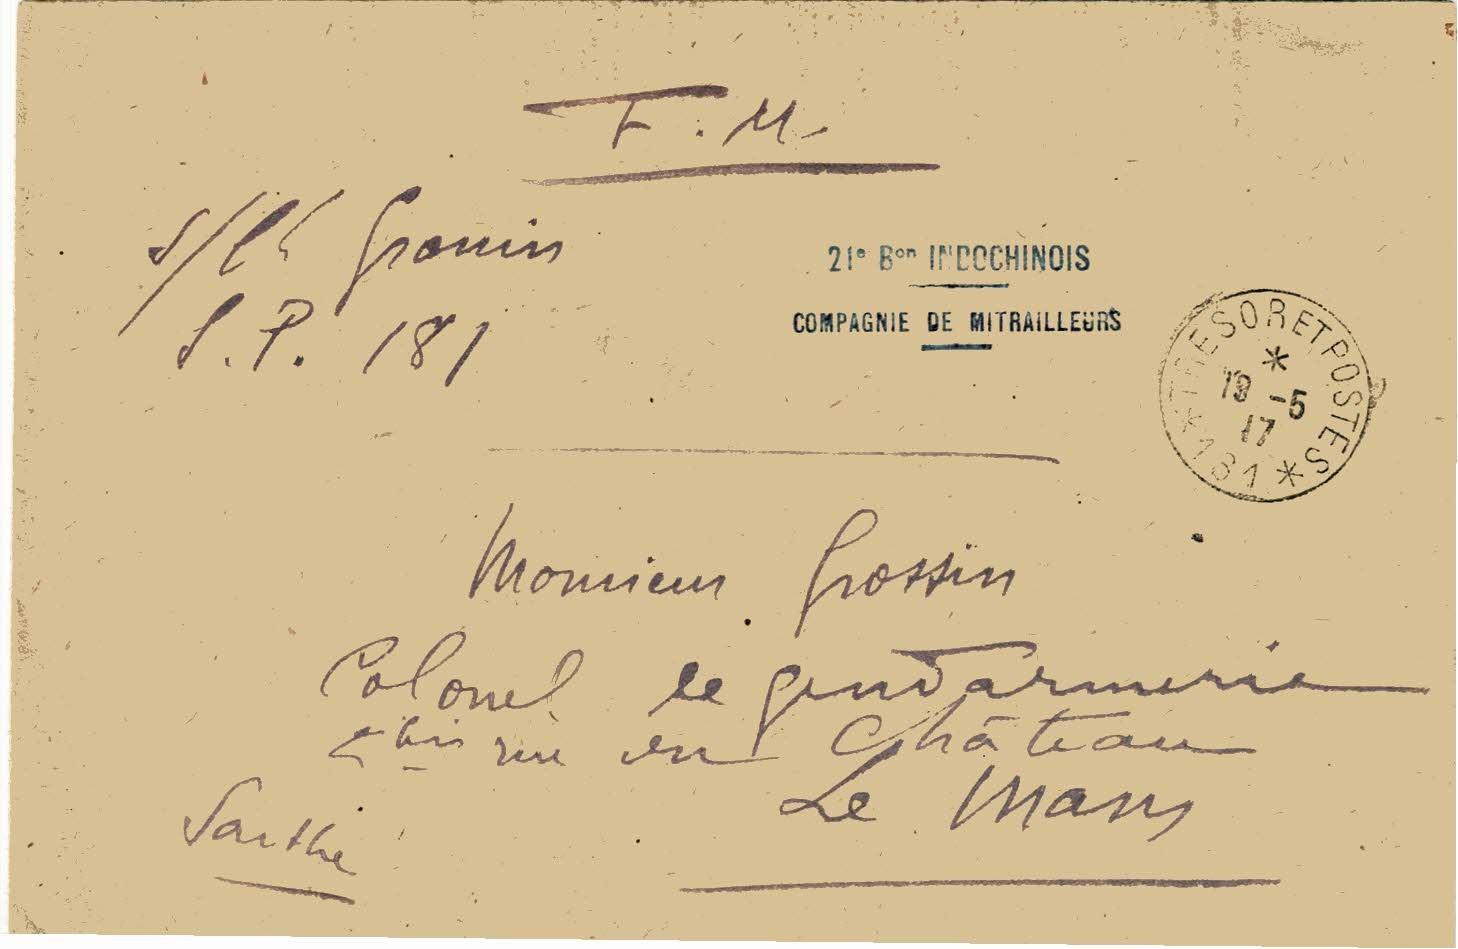 F. M.
S/Lt Grouin
S. P. 181
21e Bon INDOCHINOIS
COMPAGNIE DE MITRAILLEURS
* TRESOR ET POSTES *
*
19 -5
17
181
Monsieur Grossin
Colonel de gendarmerie
bis rue du Château
Le Mans
Sarthe